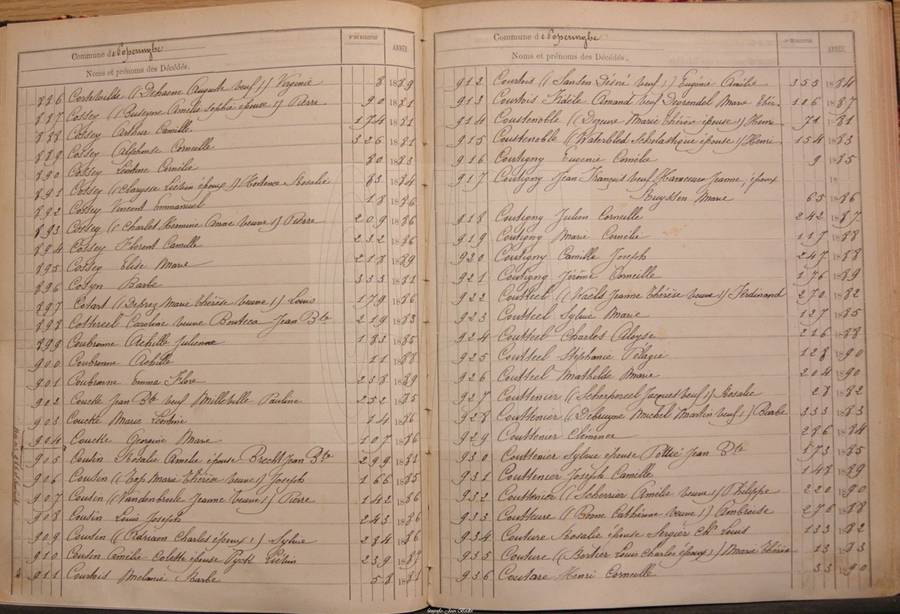 Commune de Poperinghe
N° DU REGISTRE
ANNÉE
Noms et prénoms des Décédés.
886 Cortewilde ((Debaene Auguste veuf)) Virginie 8 1889
887 Cossey Amélie Sophie épouse Pierre 90 1881
888 Cossey Arthur Camille 174 1881
889 Cossey Alphonse Corneille 326 1881
890 Cossey Leontine Cornélie 80 1883
891 Cossey Hortence Rosalie 83 1884
892 Cossey Vincent Emmanuel 18 1886
893 Cossey ((Charlet veuve)) Pierre 209 1886
894 Cossey Florent Camille 232 1886
895 Cossey Elise Marie 218 1889
896 Cosyn Barbe 333 1881
897 Cotart ((Debrey Marie Thérèse veuve)) Louis 179 1886
898 Cottereel Caroline veuve Jean Bte 219 1883
899 Coubronne Achille Julienne 183 1885
900 Coubronne Achille 11 1888
901 Coubronne Emma Flore 238 1889
902 Coucke Jean Bte veuf Millebille Pauline 252 1885
903 Coucke Marie Léontine 14 1886
904 Coucke Marie 107 1886
905 Cousin Rosalie Amélie épouse Brecht Jean Bte 299 1881
906 Cousin ((Top Marie Thérèse veuve)) Joseph 166 1885
907 Cousin ((Vandenbriele Jeanne veuve)) Pierre 142 1886
908 Cousin Louis Joseph 243 1886
909 Cousin Charles époux)) Sylvie 284 1886
910 Cousin Amélie Colette épouse 239 1887
911 Courtois Melanie Barbe 58 1881
Commune de Poperinghe
N° DU REGISTRE
ANNÉE
Noms et prénoms des Décédés.
912 Courtois ((Sansen Désiré veuf)) Eugénie Amélie 355 1884
913 Courtois Fidèle Amand veuf Marie 106 1887
914 Coustenoble Marie Thérèse épouse)) 71 1881
915 Coustenoble ((Waterbled Scholastique épouse)) Henri 154 1883
916 Coutigny Eugenie Cornélie 9 1885
917 Coutigny Jean François veuf Jeanne, époux 18
Marie 65 1886
918 Coutigny Julien Corneille 242 1887
919 Coutigny Marie Cornélie 117 1888
920 Coutigny Camille Joseph 247 1888
921 Coutigny Jérôme Corneille 276 1889
922 Coutteel ((Waels Jeanne Thérèse veuve)) Ferdinand 270 1882
923 Coutteel Sylvie Marie 127 1885
924 Coutteel Charles Aloyse 226 1888
925 Coutteel Stéphanie Pélagie 128 1890
926 Coutteel Mathilde Marie 204 1890
927 Couttenier ((Scherpereel Jacques veuf)) Rosalie 28 1882
928 Couttenier ((Debruyne Michel Martin veuf)) Barbe 333 1883
929 Couttenier Clémence 286 1884
930 Couttenier Sylvie épouse Jean Bte 173 1885
931 Couttenier Joseph Camille 148 1889
932 Couttenier ((Scherrier Amélie veuve)) Philippe 220 1890
933 Coutteure Cathérine veuve)) Ambroise 276 1888
934 Couture Rosalie épouse Louis 133 1882
935 Couture ((Bertier Louis Charles époux)) Marie Thérèse 13 1883
936 Couture Henri Corneille 33 1890